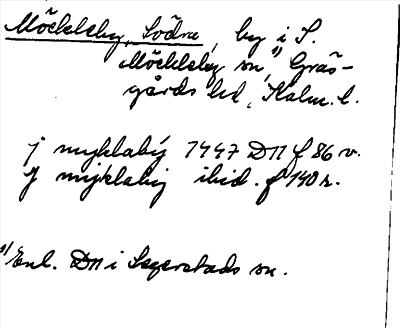 Möckleby, Södra, by i S.
Möckleby sn,¹⁾ Gräs-
gårds hd, Kalm. l.
j myklaby 1447 DN f 86 v.
J myklaby ibid. f 140 r.
¹⁾ Enl. DN i Segerstads sn.